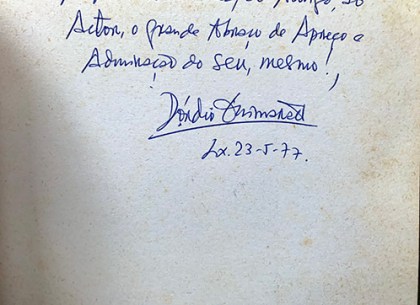 Amigo, ao
Actor, o grande Abraço de Apreço e
Admiração do seu, mesmo!,
Dórdio Guimarães
Lx. 23-5-77.